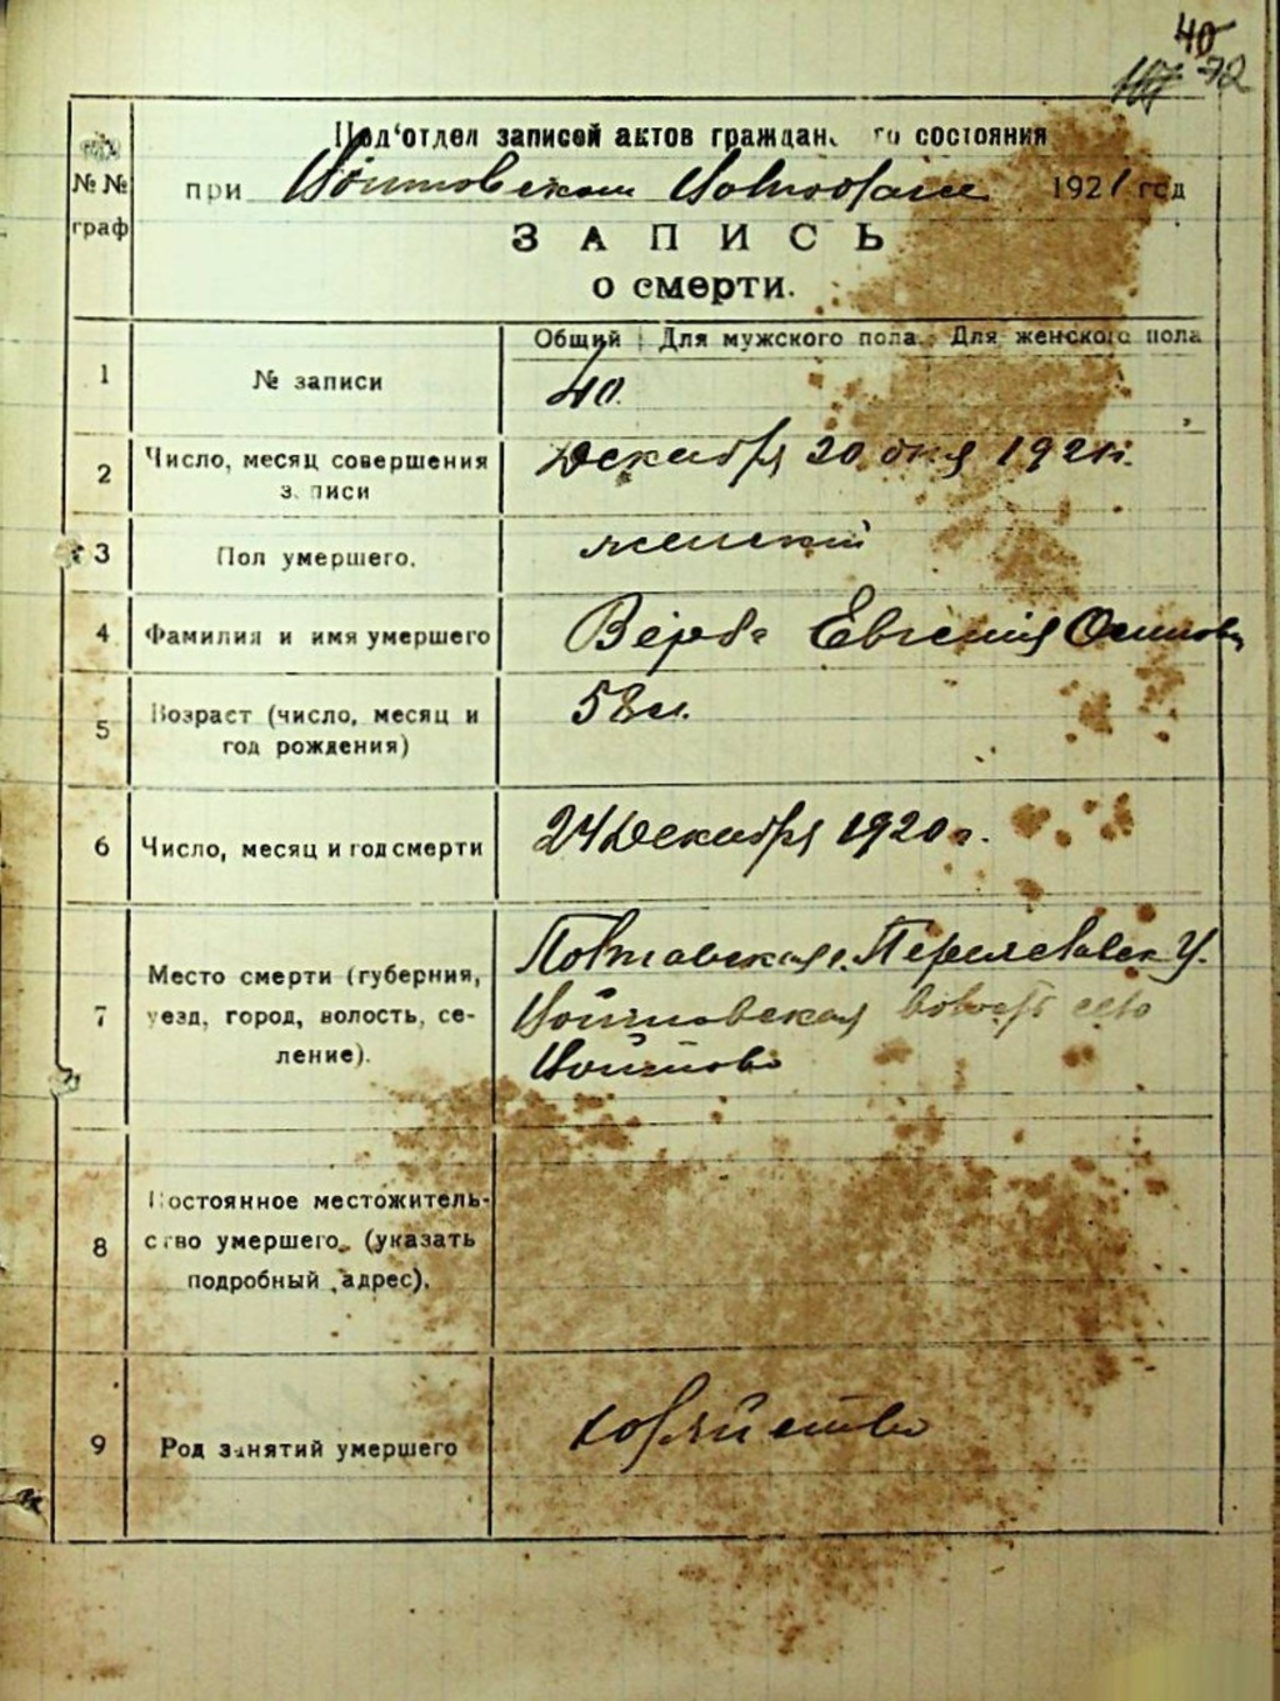 40
72
Под'отдел записей актов граждан. го состояния
при Войтовском Волисполкоме 1921 год
№ №
граф
ЗАПИСЬ
о смерти.
Общий Для мужского пола. Для женского пола
1 № записи 40.
2 Число, месяц совершения
з. писи
Декабря 20 дня 1921 г.
3 Пол умершего. женский
4 Фамилия и имя умершего Верба Евгения Осипов
5 Возраст (число, месяц и
год рождения)
58 л.
6 Число, месяц и год смерти 24 Декабря 1920 г.
7 Место смерти (губерния,
уезд, город, волость, се-
ление).
Полтавская г. Переяславск У.
Войтовская волость село
Войтово
8 Постоянное местожитель-
ство умершего. (указать
подробный адрес).
9 Род занятий умершего хозяйство